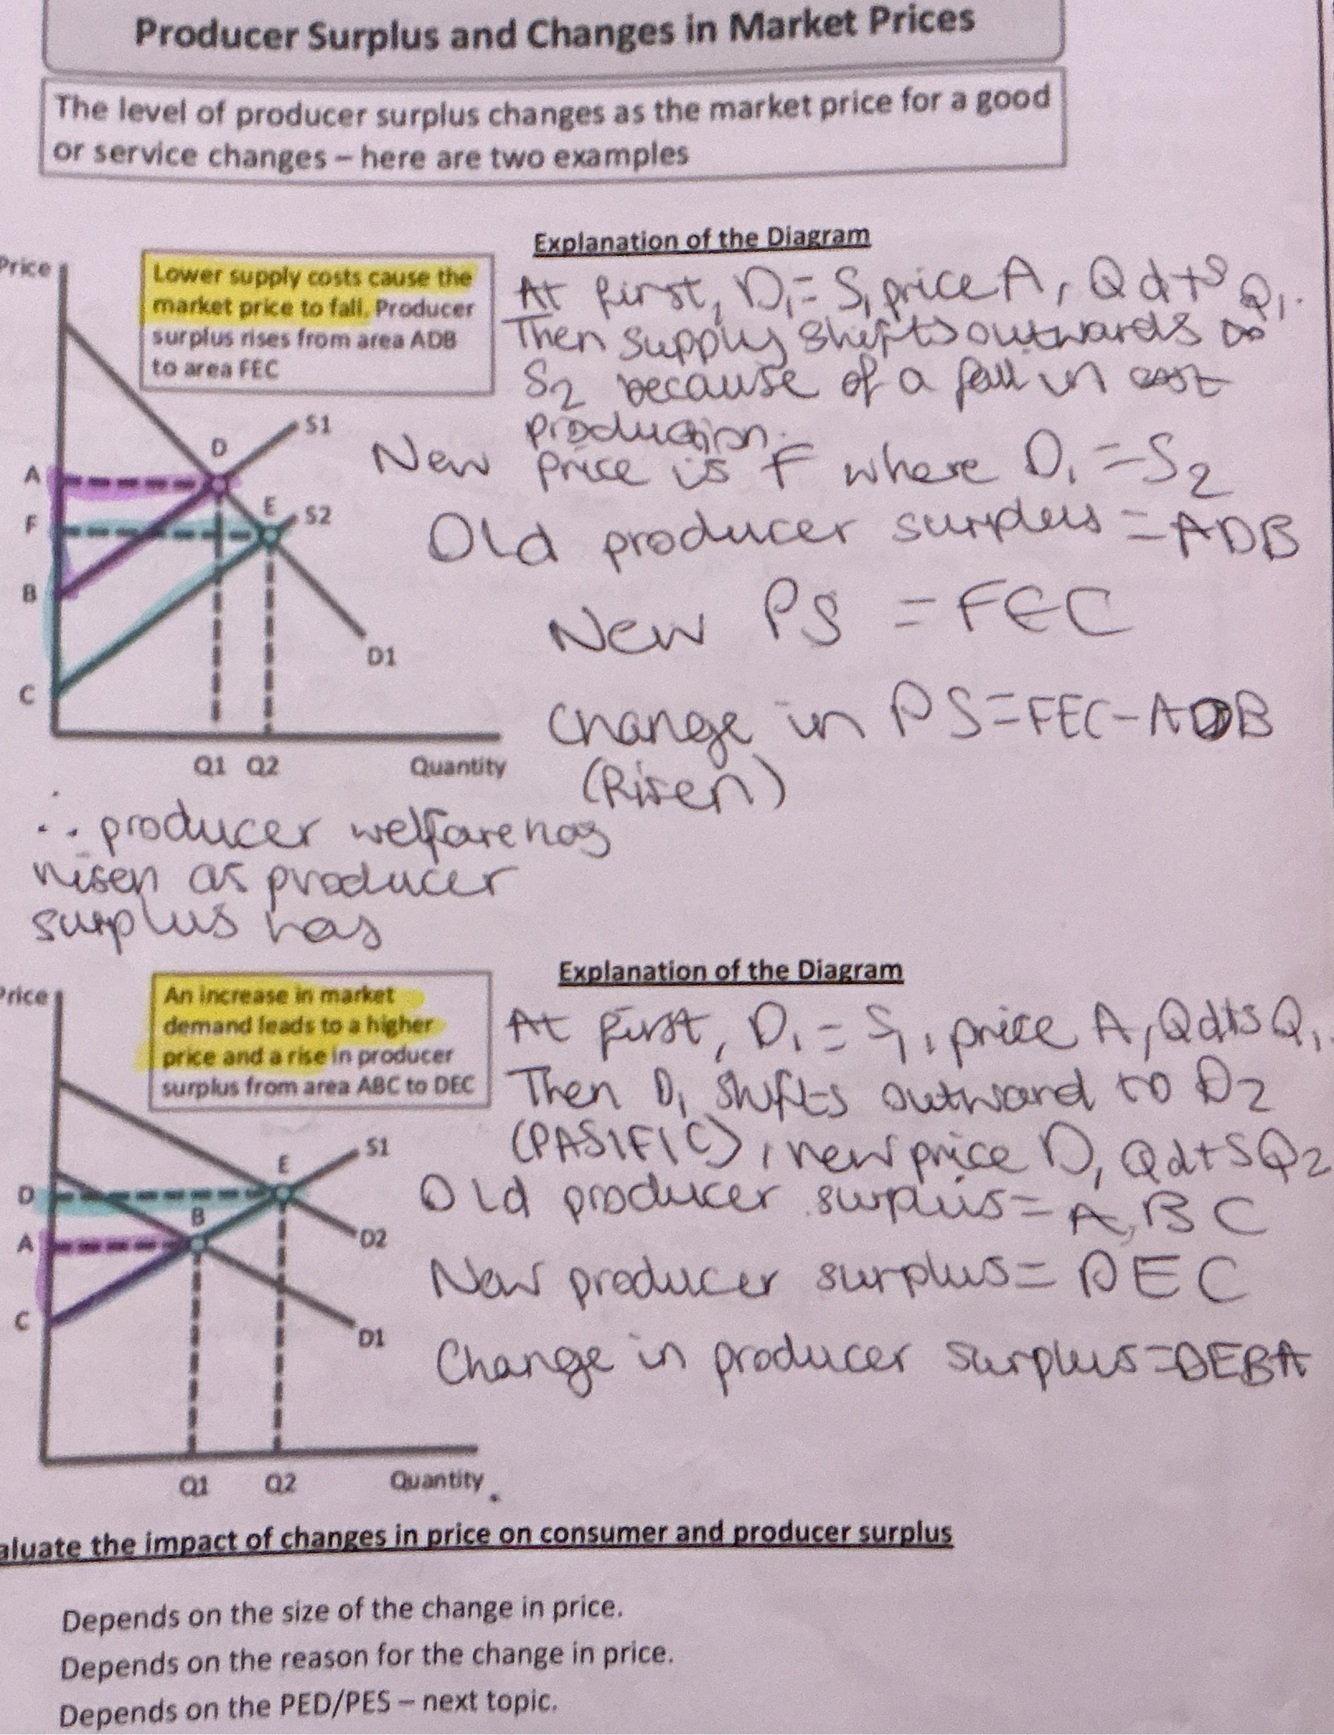 Producer Surplus and Changes in Market Prices
The level of producer surplus changes as the market price for a good
or service changes – here are two examples
Explanation of the Diagram
Price
Lower supply costs cause the
market price to fall. Producer
surplus rises from area ADB
to area FEC
At first, D1 = S1 price A, Qd+S Q1.
Then supply shifts outwards to
S2 because of a fall in cost
production.
New price is F where D1 = S2
Old producer surplus = ADB
New PS = FEC
Change in PS = FEC - ADB
(Risen)
S1
D
A
E
S2
F
B
D1
C
Q1 Q2
Quantity
∴ producer welfare has
risen as producer
surplus has
Explanation of the Diagram
Price
An increase in market
demand leads to a higher
price and a rise in producer
surplus from area ABC to DEC
At first, D1 = S1, price A, Qd+S Q1.
Then D1 shifts outward to D2
(PASIFIC), new price D, Qd+S Q2
Old producer surplus = ABC
New producer surplus = DEC
Change in producer surplus = DEBA
S1
E
D
B
D2
A
C
D1
Q1
Q2
Quantity
aluate the impact of changes in price on consumer and producer surplus
Depends on the size of the change in price.
Depends on the reason for the change in price.
Depends on the PED/PES – next topic.